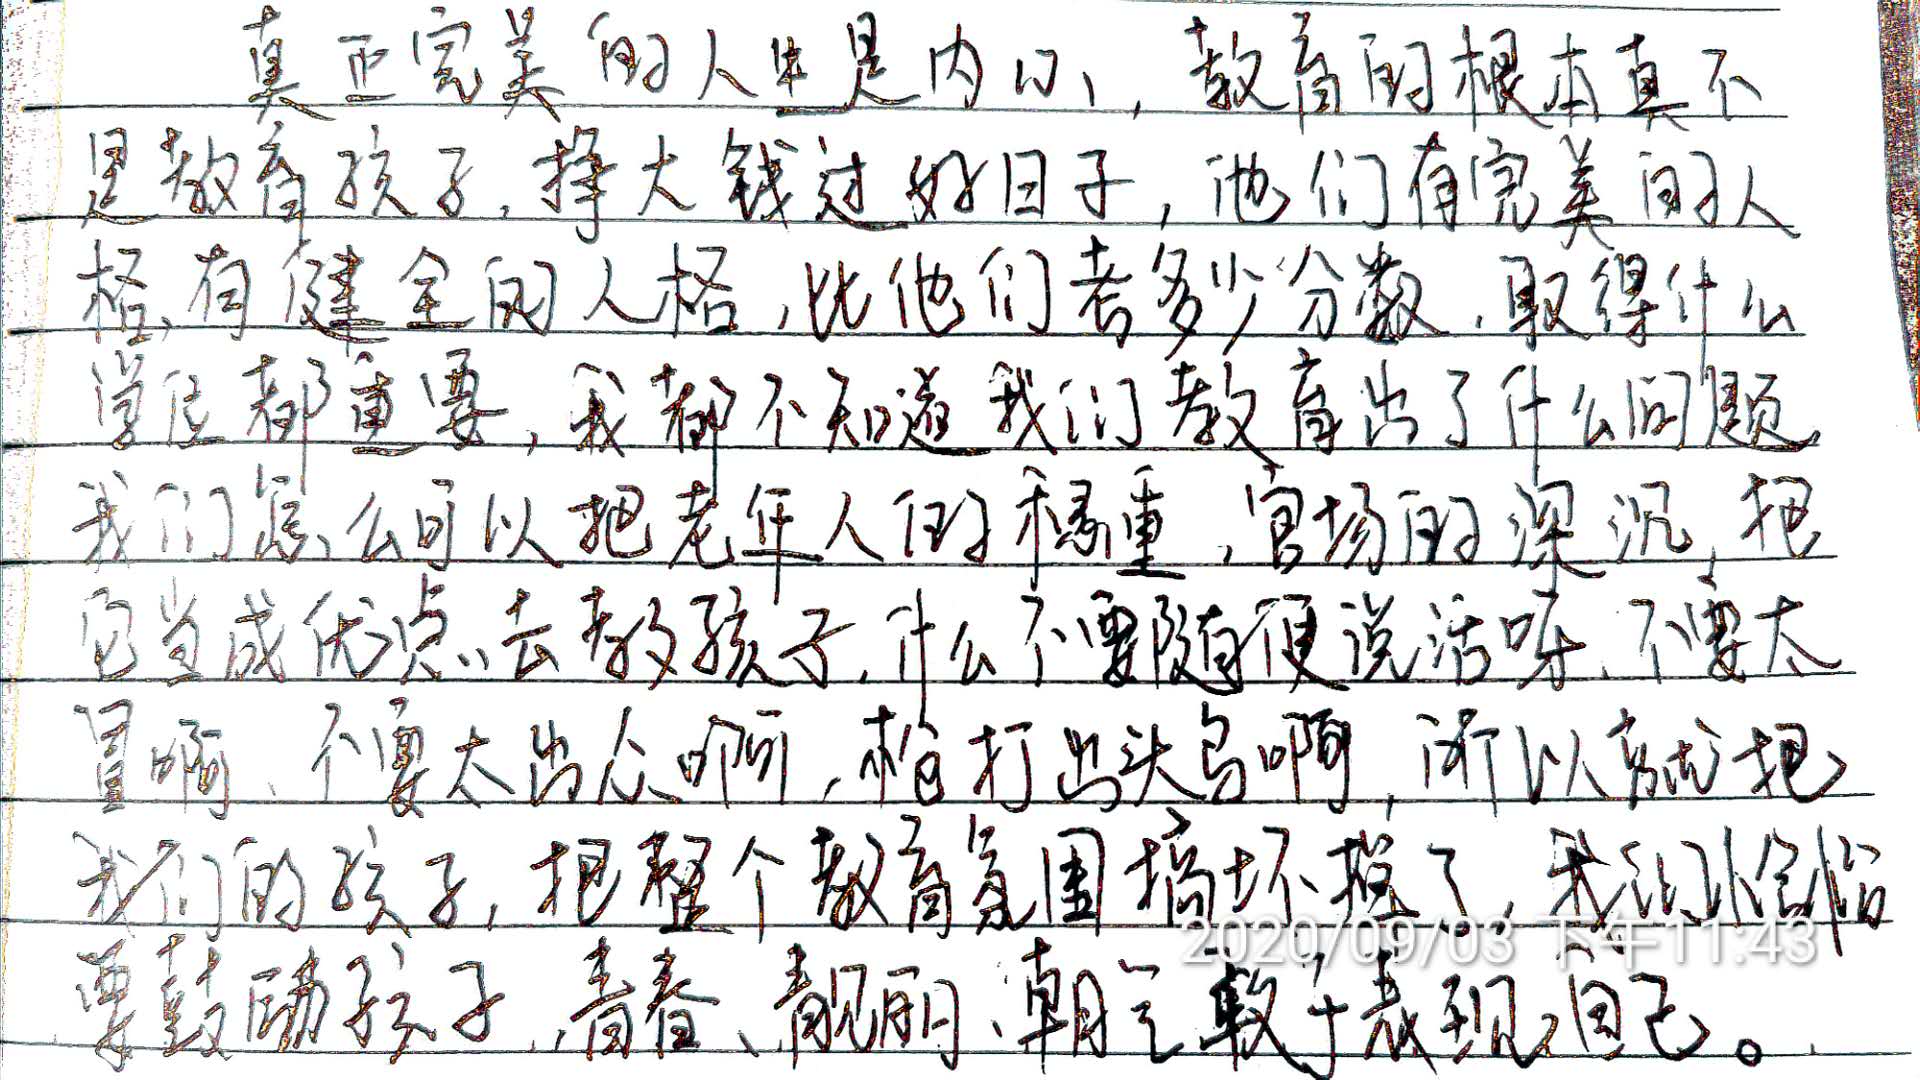 真正完美的人生是内心，教育的根本真不
是教育孩子，挣大钱过好日子，他们有完美的人
格，有健全的人格，比他们考多少分数，取得什么
学位都重要，我都不知道我们教育出了什么问题，
我们怎么可以把老年人的稳重，官场的深沉，把
它当成优点，去教孩子，什么不要随便说话呀、不要太
冒啊、不要太出众啊，枪打出头鸟啊，所以就把
我们的孩子，把整个教育氛围搞坏掉了，我们恰恰
要鼓励孩子，青春、靓丽、朝气、敢于表现自己。
2020/09/03 下午11:43